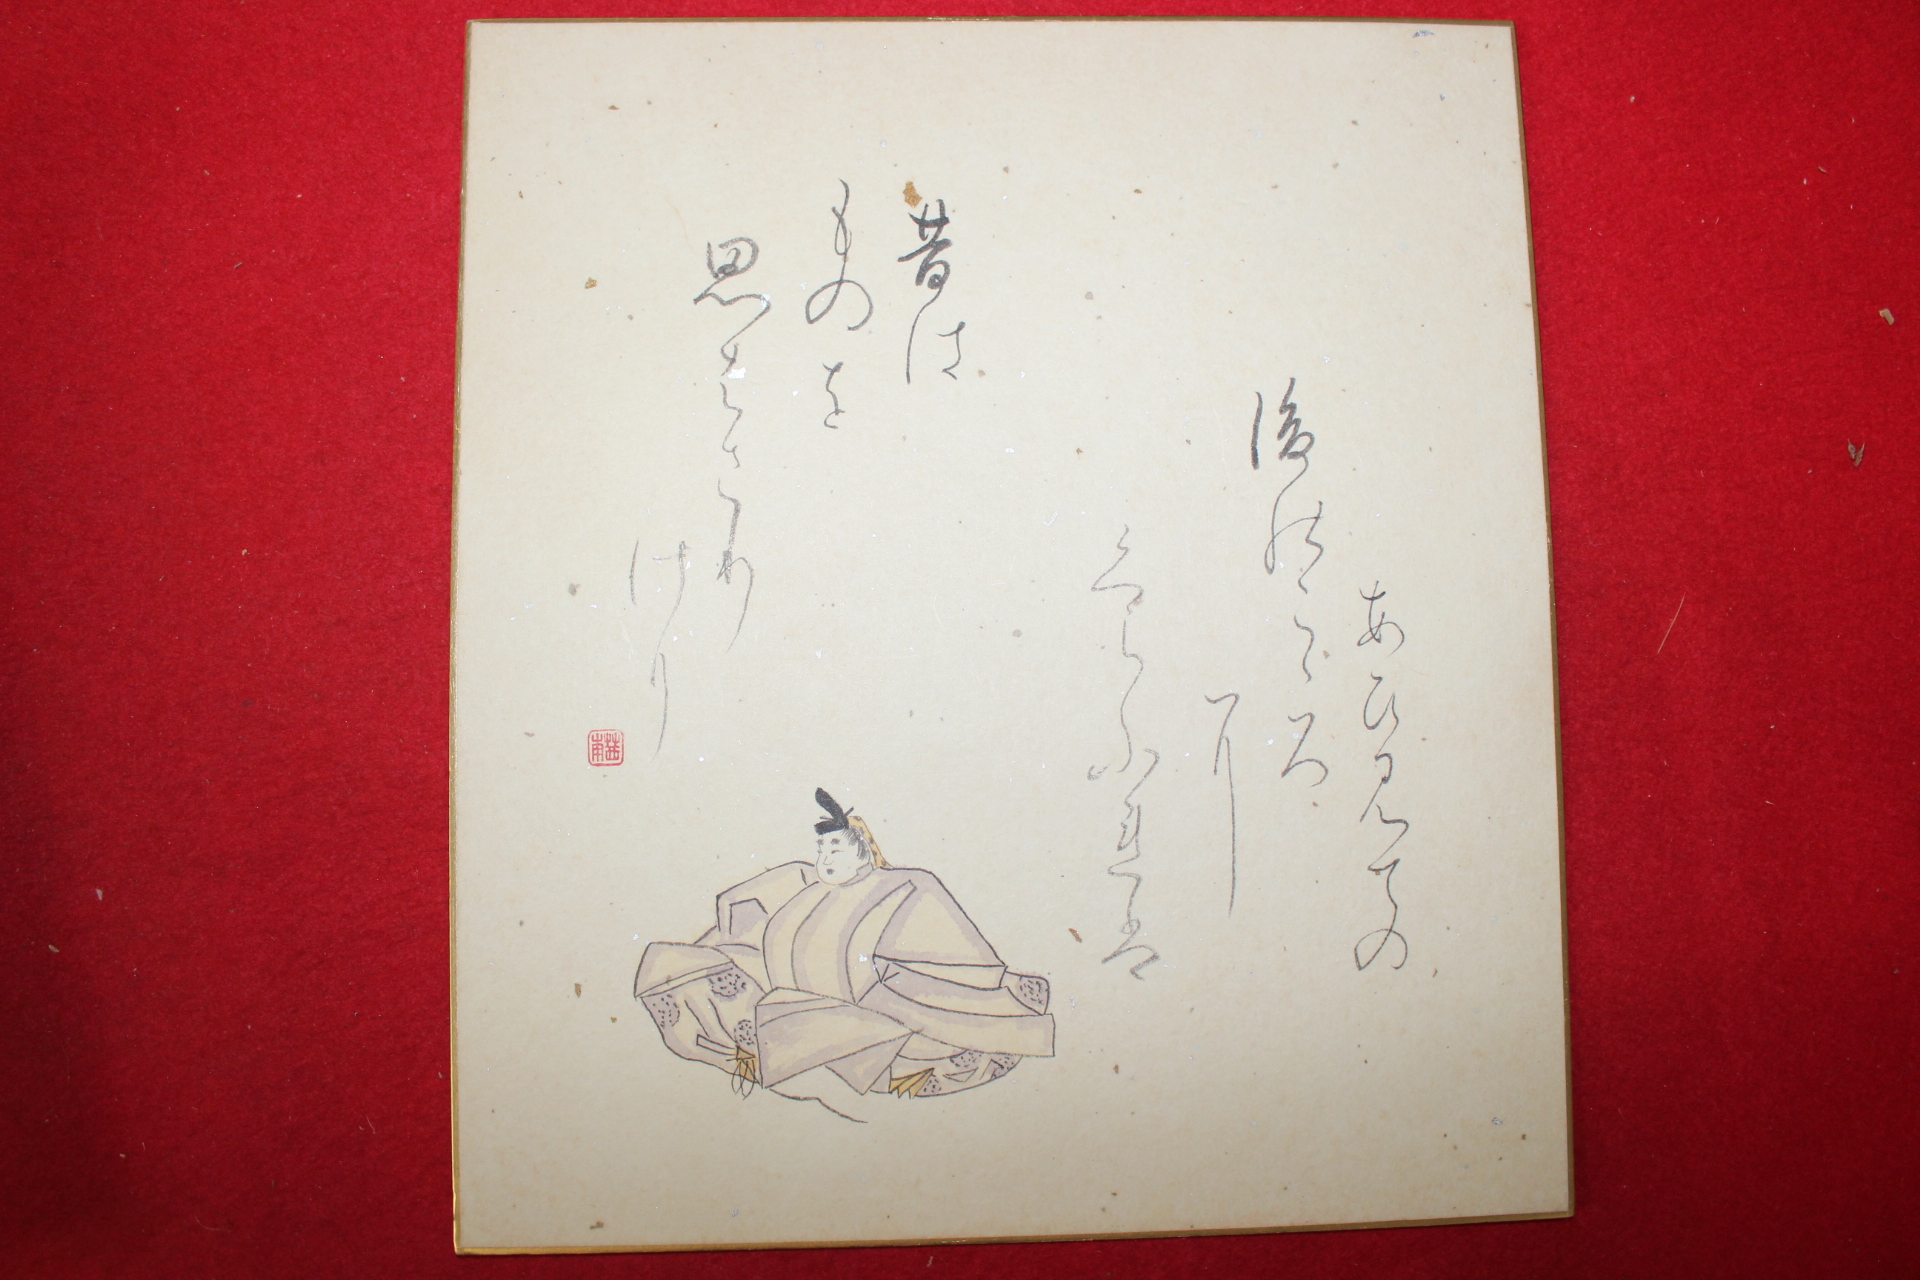 あひ見ての
後能こころ
に
くらふれは
昔は
ものを
思はさり
けり